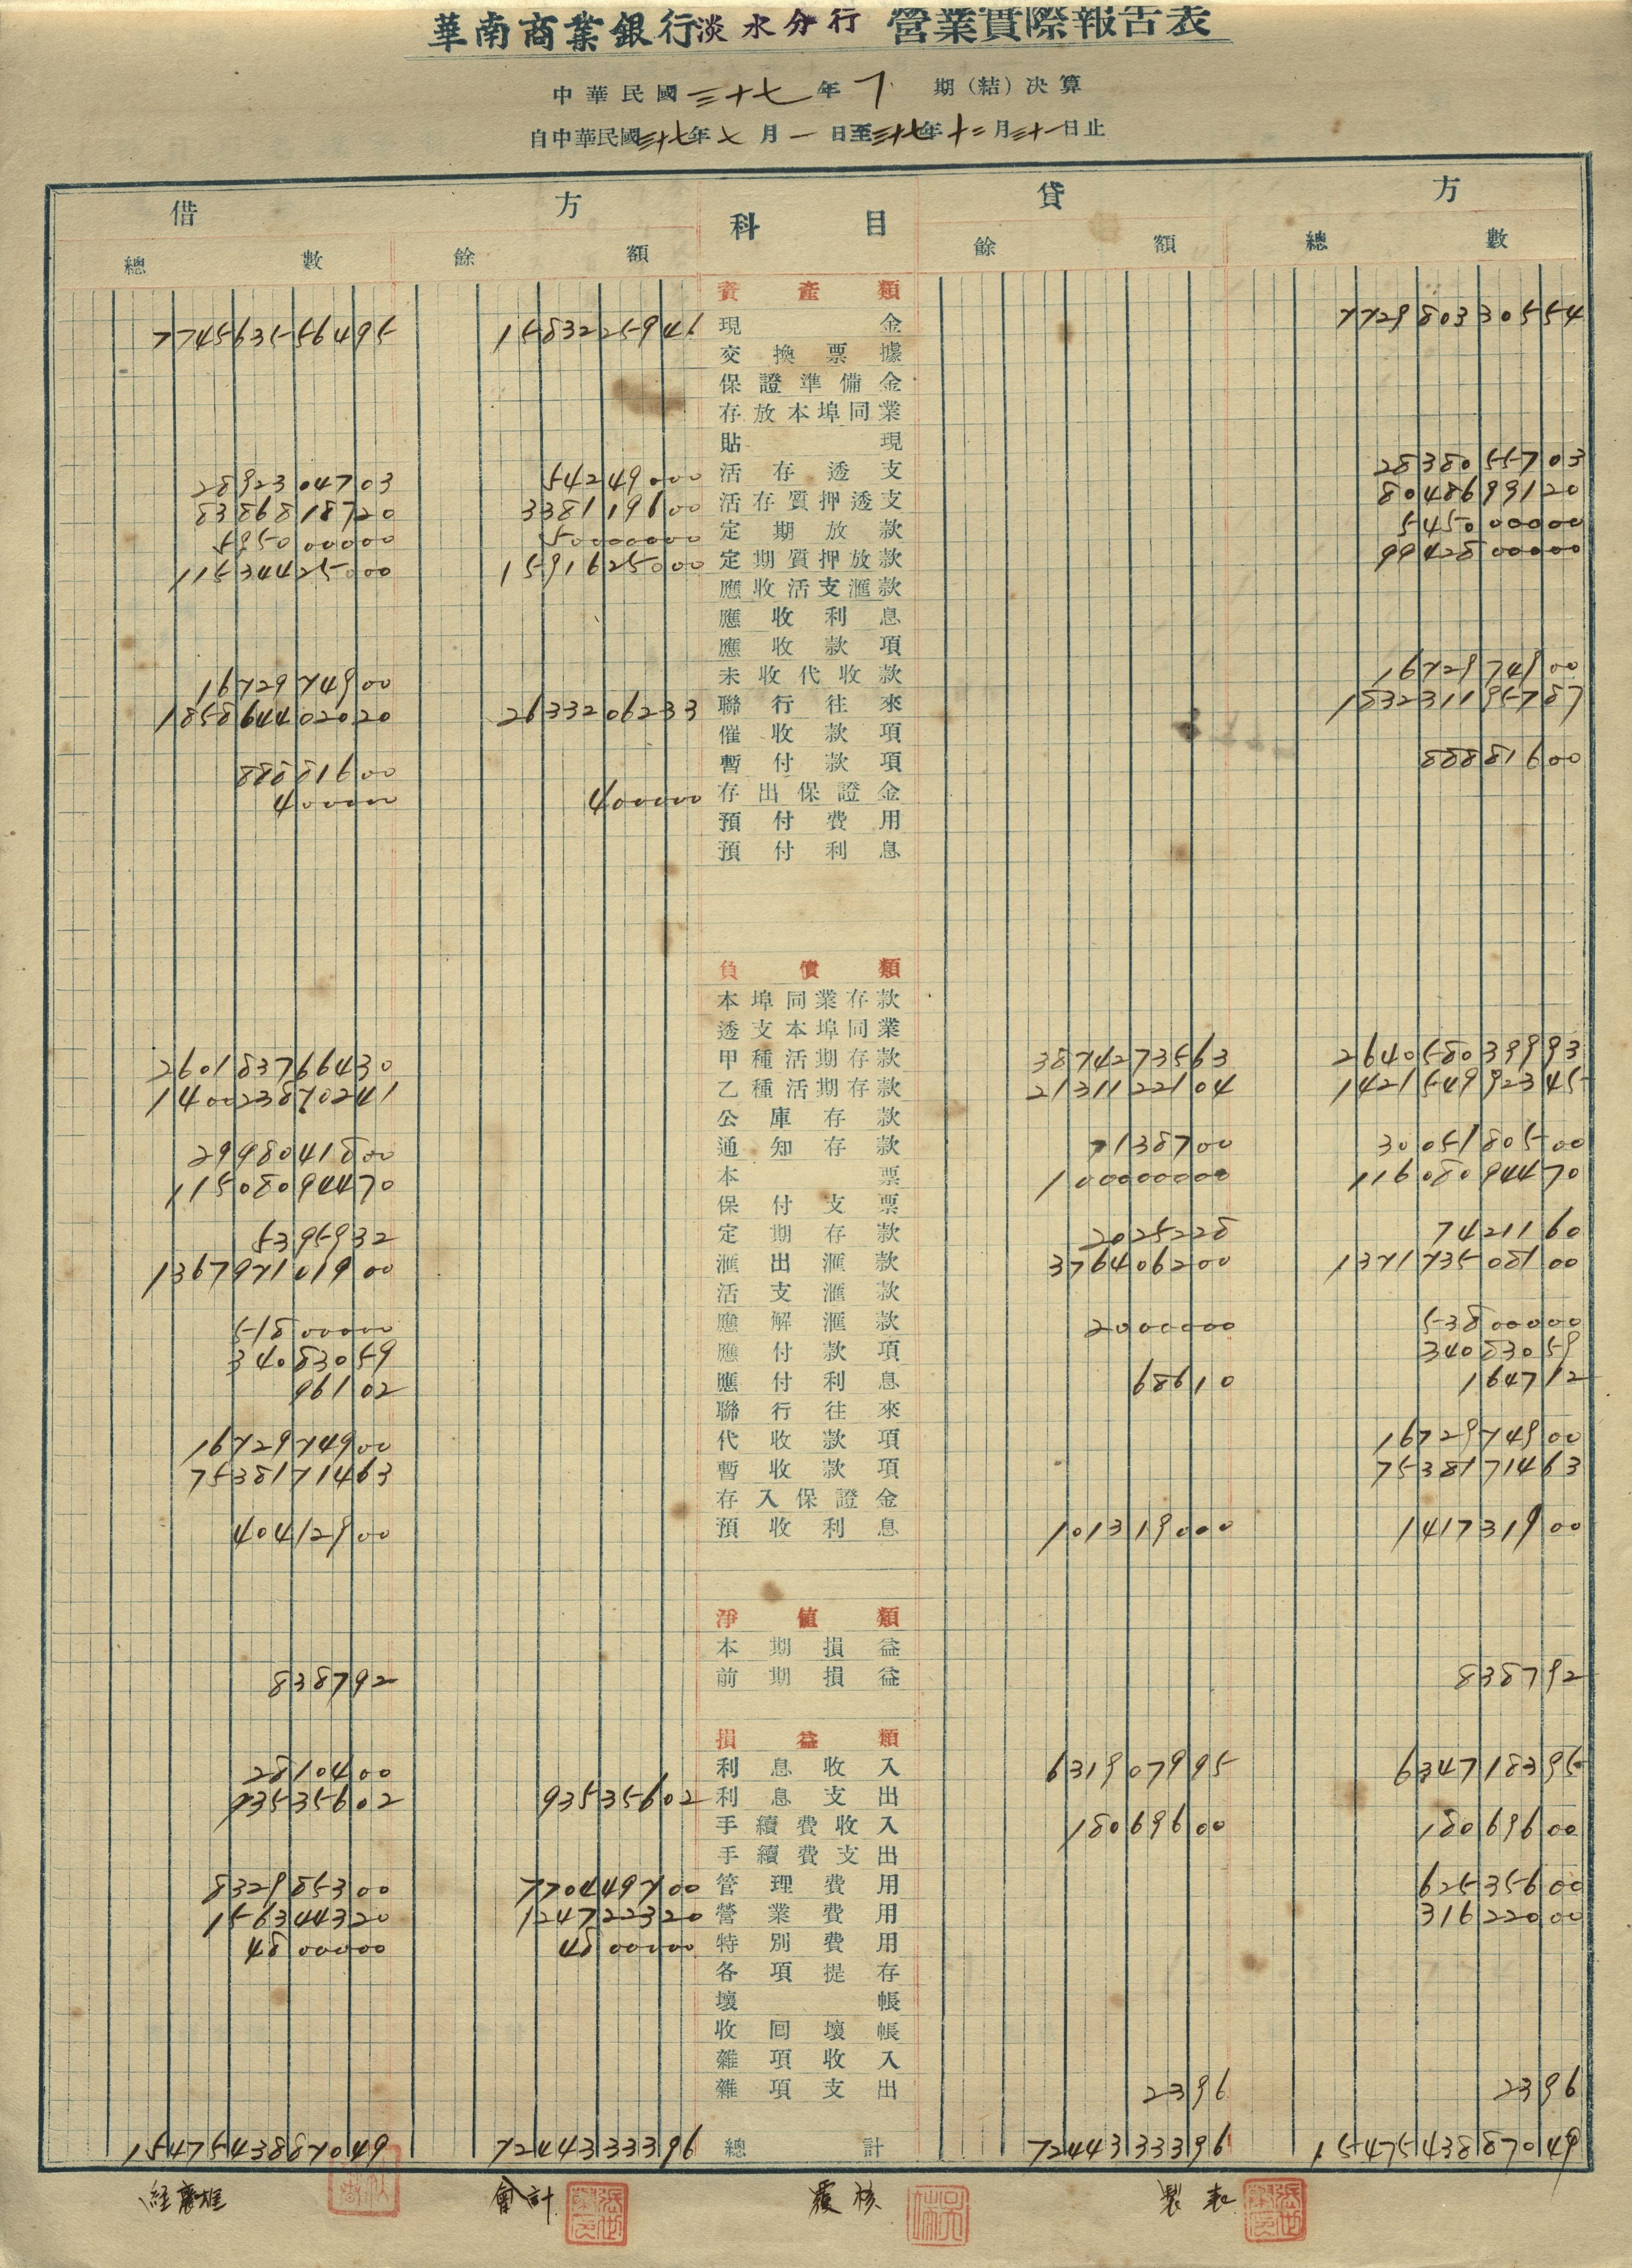 華南商業銀行淡水分行 營業實際報告表
中華民國三十七年下期(結)決算
自中華民國三十七年七月一日至三十七年十二月三十一日止
借 方 科 目 貸 方
總 數 餘 額 餘 額 總 數
資產類
774563556495 1583225941 現金 772980330554
交換票據
保證準備金
存放本埠同業
貼現
2892304703 54249000 活存透支 2838055703
8386818720 338119600 活存質押透支 8048699120
595000000 50000000 定期放款 545000000
11534425000 1591625000 定期質押放款 9942800000
應收活支滙款
應收利息
應收款項
1672974900 未收代收款 1672974900
185864402020 2633206233 聯行往來 183231195787
催收款項
88881600 暫付款項 88881600
400000 400000 存出保證金
預付費用
預付利息
負債類
本埠同業存款
透支本埠同業
260183766430 甲種活期存款 3874273563 264058039993
140023870241 乙種活期存款 2131122104 142154992345
公庫存款
2998041800 通知存款 7138700 3005180500
11508094470 本票 100000000 11608094470
保付支票
5395932 定期存款 2025228 7421160
136797101900 滙出滙款 376406200 137173508100
活支滙款
51800000 應解滙款 2000000 53800000
34083059 應付款項 34083059
96102 應付利息 68610 164712
聯行往來
1672974900 代收款項 1672974900
7538171463 暫收款項 7538171463
存入保證金
40412900 預收利息 101319000 141731900
淨值類
本期損益
838792 前期損益 838792
損益類
2810400 利息收入 631907995 634718395
93535602 93535602 利息支出
手續費收入 18069600 18069600
手續費支出
832985300 770449700 管理費用 62535600
156344320 124722320 營業費用 31622000
4800000 4800000 特別費用
各項提存
壞帳
收回壞帳
雜項收入
雜項支出 2396 2396
1547543887049 7244333396 總計 7244333396 1547543887049
經襄雄 會計 覆核 製表